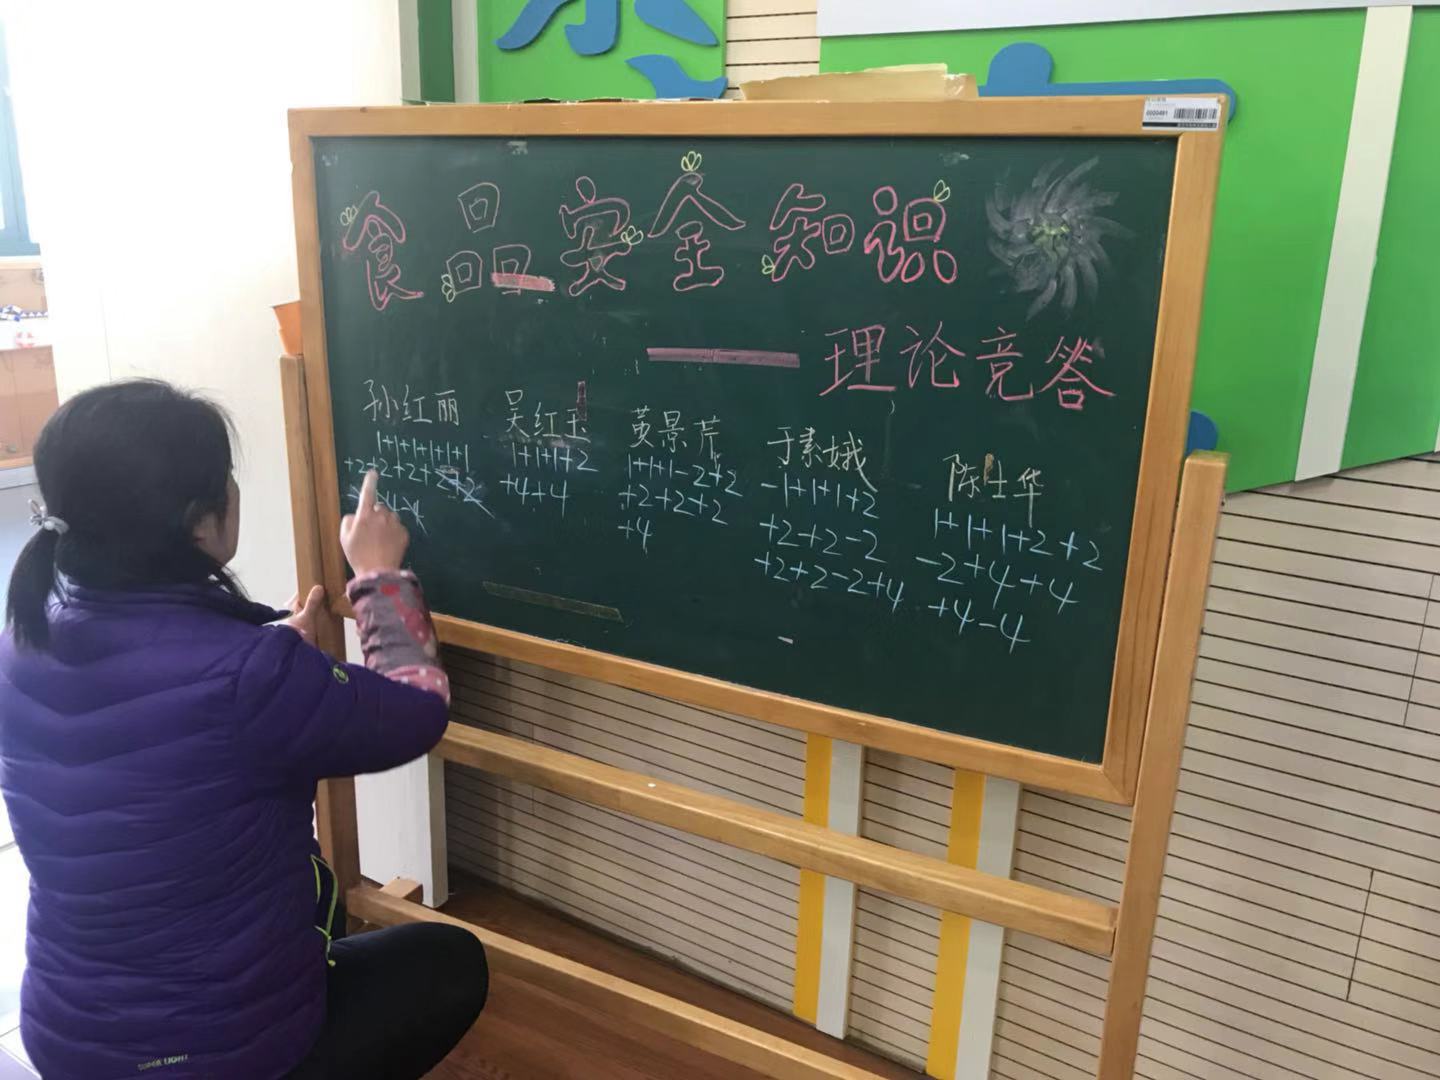 食品安全知识
——理论竞答
孙红丽
1+1+1+1+1+1
+2+2+2+2+2
吴红玉
1+1+1+2
+4+4
黄景芹
1+1+1-2+2
+2+2+2
+4
于素娥
-1+1+1+2
+2+2-2
+2+2-2+4
陈仕华
1+1+1+2+2
-2+4+4
+4-4
0000491
SUPER LIGHT